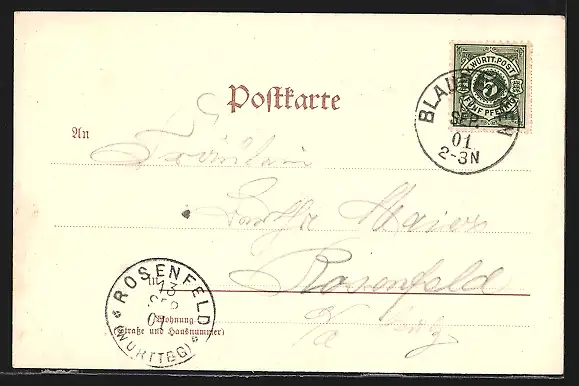 K. WÜRTT. POST
5
FÜNF PFENNIG
BLAUB
SEP
01
2-3N
Postkarte
An
Fräulein
Maier
in
Rosenfeld
ROSENFELD
13
SEP
01
(WÜRTTBG)
Wohnung
(Straße und Hausnummer)